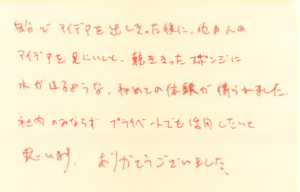 自分でアイデアを出しきった後に、他の人の
アイデアを見にいくと、乾ききったスポンジに
水がはいるような、初めての体験が得られました。
社内のみならずプライベートでも活用したいと
思います。ありがとうございました。